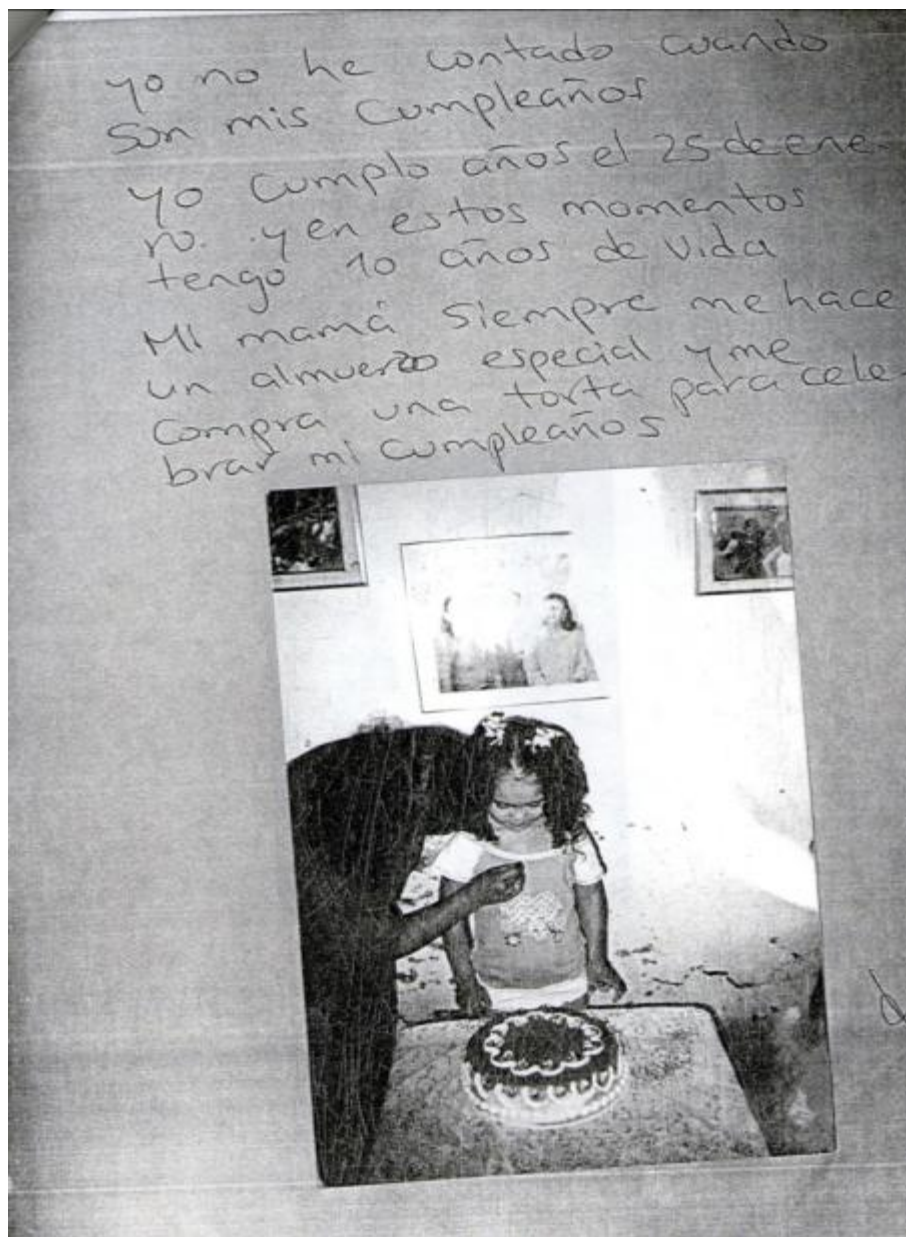 yo no he contado cuando
son mis Cumpleaños
yo Cumplo años el 25 de ene-
ro. .y en estos momentos
tengo 10 años de vida
Mi mamá siempre me hace
un almuerzo especial y me
Compra una torta para cele-
brar mi cumpleaños